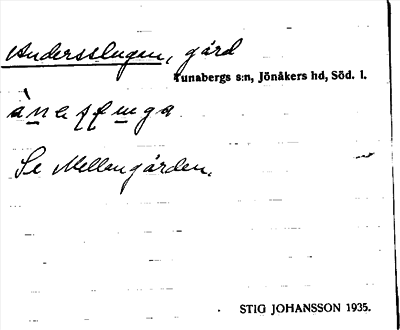 Andersslugan, gård
Tunabergs s:n, Jönåkers hd, Söd. l.
Se Mellangården.
STIG JOHANSSON 1935.